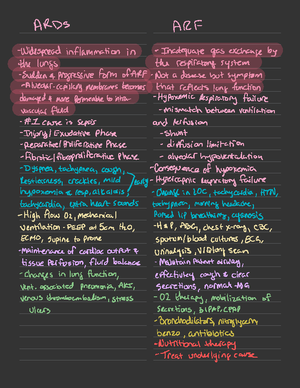 ARDs
-Widespread inflammation in
the lungs
-Sudden & progressive form of ARF
-Alveolar-capillary membranes becomes
damaged & more permeable to intra-
vascular fluid
-#1 cause is sepsis
-Injury/ Exudative Phase
-Reparative/Proliferative Phase
-Fibrotic/fibroproliferative Phase
-Dyspnea, tachypnea, cough,
Restlessness, crackles, mild
hypoxemia & resp. alkalosis
early
tachycardia, extra heart sounds
-High flow O2, mechanical
ventilation - PEEP at 5cm H2O,
ECMO, supine to prone
-Maintenance of cardiac output &
tissue perfusion, fluid balance
-changes in lung function,
vent. associated pneumonia, AKI,
venous thromboembolism, stress
ulcers
ARF
-Inadequate gas exchange by
the respiratory system
-Not a disease but symptom
that reflects lung function
-Hypoxemic Respiratory failure
-mismatch between ventilation
and perfusion
-Shunt
-diffusion limitation
-alveolar hypoventilation
-Consequence of hypoxemia
-Hypercapnic respiratory failure
-Change in LOC, tachycardia, HTN,
tachypnea, morning headache,
Pursed lip breathing, cyanosis
-H&P, ABG, chest x-ray, CBC,
sputum/blood cultures, ECG,
urinalysis, V/Q lung scan
-Maintain Patent airway,
effectively cough & clear
secretions, normal ABG
-O2 therapy, mobilization of
secretions, BiPAP, CPAP
-Bronchodilators, nitroglycerin,
benzo, antibiotics
-Nutritional therapy
-Treat underlying cause